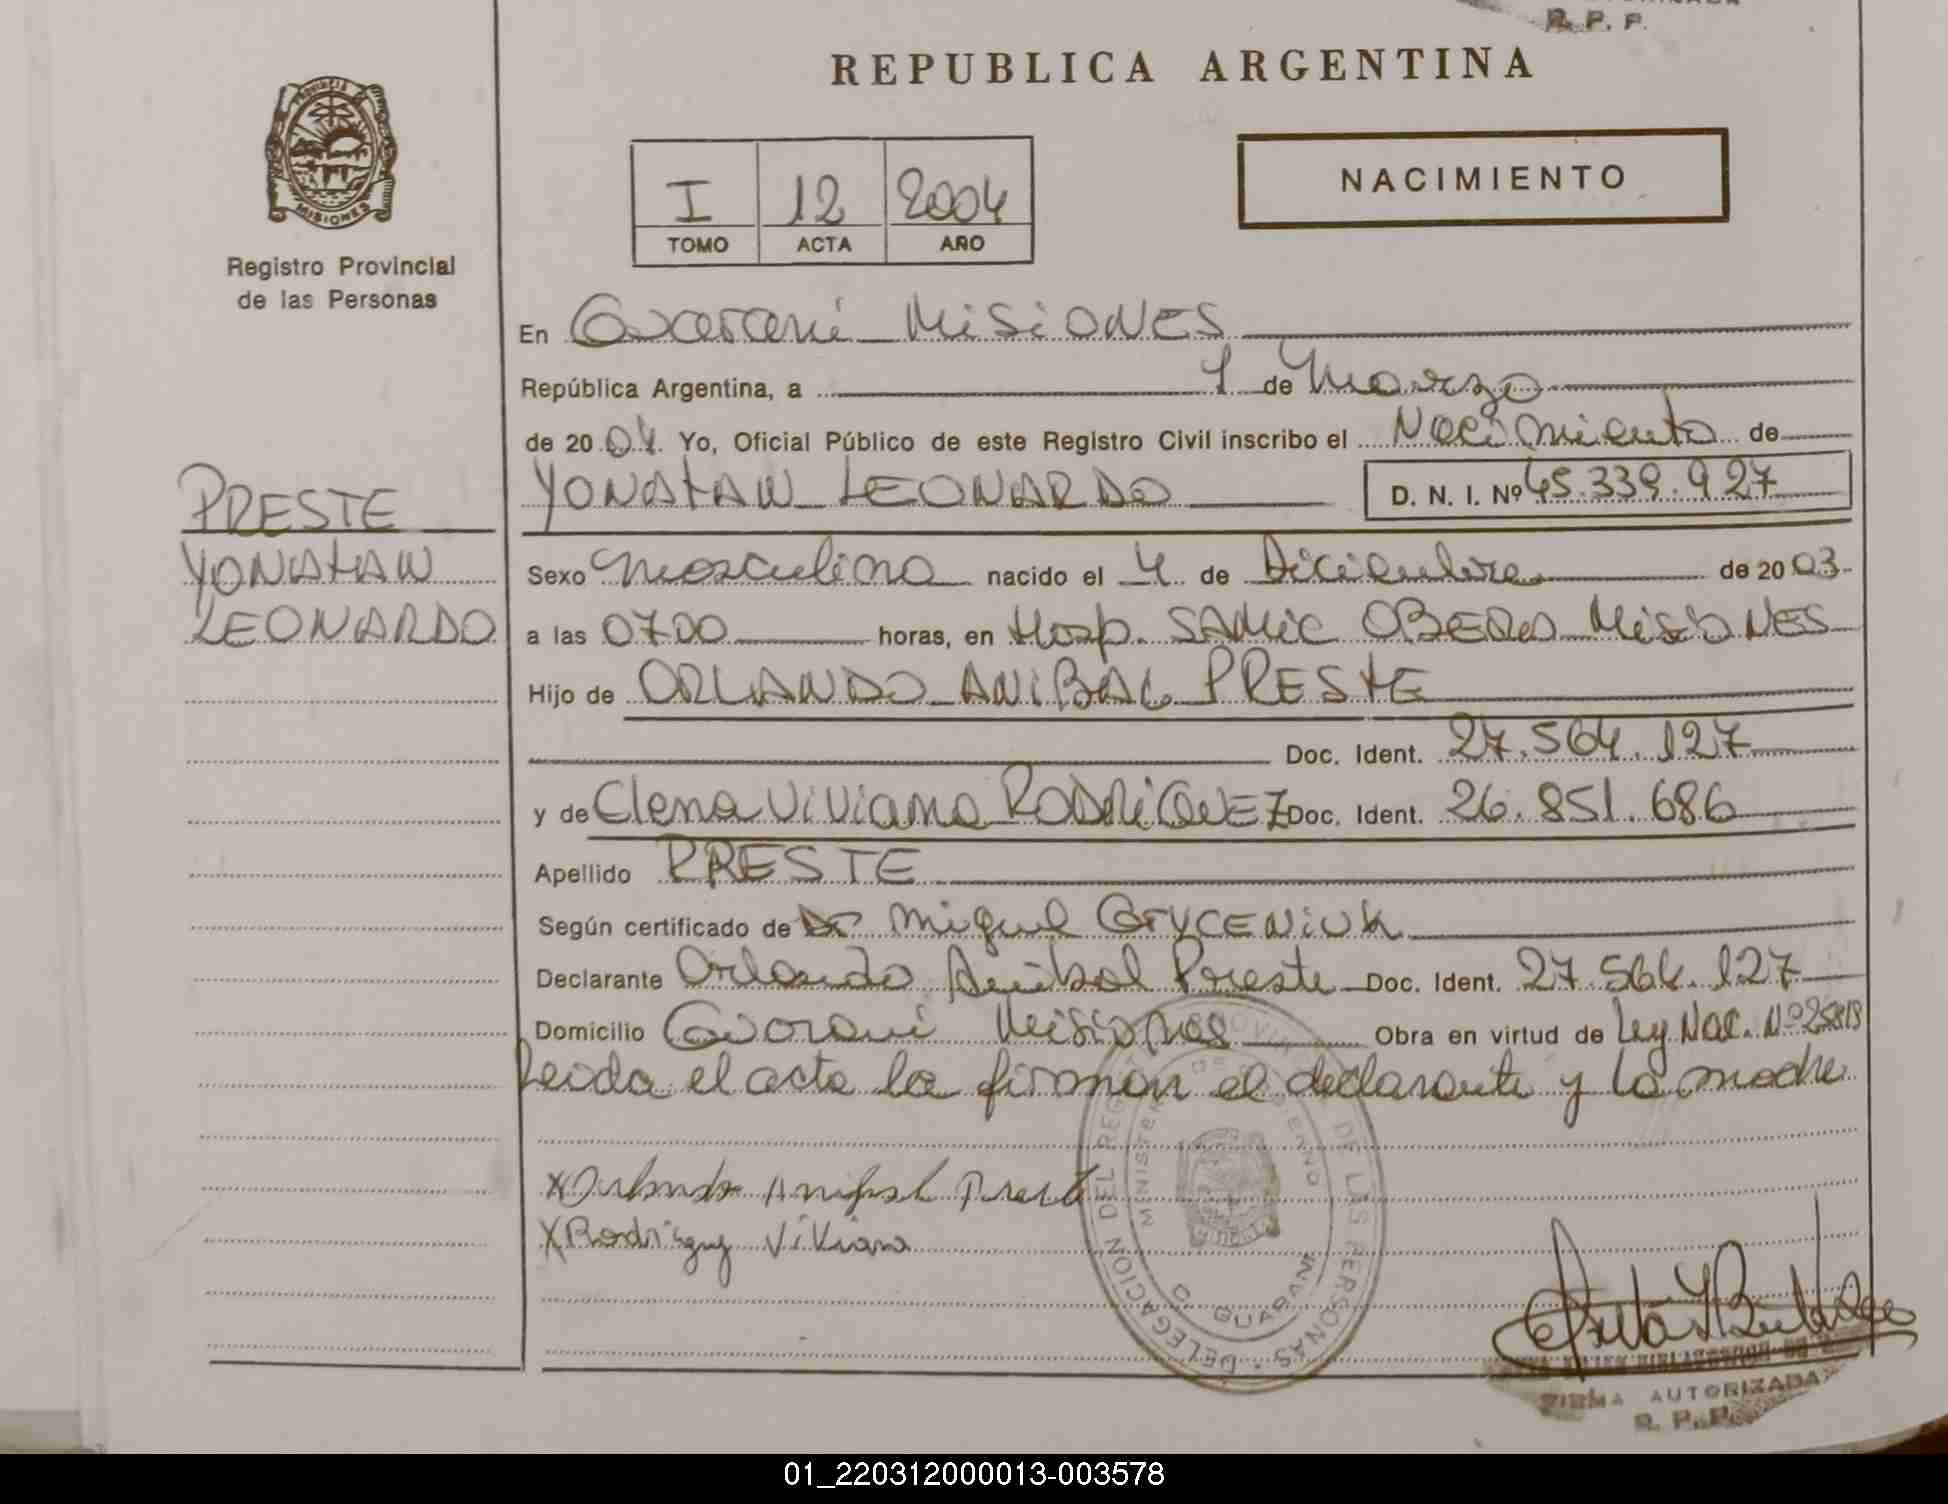 R. P. P.
REPUBLICA ARGENTINA
PROVINCIA DE
MISIONES
Registro Provincial
de las Personas
I 12 2004
TOMO ACTA AÑO
NACIMIENTO
En Guarani Misiones
República Argentina, a 1 de Marzo
de 2004. Yo, Oficial Público de este Registro Civil inscribo el Nacimiento de
YONATAN LEONARDO D. N. I. Nº 45.339.927
PRESTE
YONATAN
LEONARDO
Sexo Masculino nacido el 4 de Diciembre de 2003
a las 0700 horas, en Hosp. SAMIC OBERA MISIONES
Hijo de ORLANDO ANIBAL PRESTE
Doc. Ident. 27.564.127
y de Elena Viviana RODRIGUEZ Doc. Ident. 26.851.686
Apellido PRESTE
Según certificado de Dr Miguel GRYCENIUK
Declarante Orlando Anibal Preste Doc. Ident. 27.564.127
Domicilio Guarani Misiones Obra en virtud de Ley Nac. Nº 25819
Leida el acta la firman el declarante y la madre
X Orlando Anibal Preste
X Rodriguez Viviana
DELEGACION DEL REGISTRO PROVINCIAL DE LAS PERSONAS
MINISTERIO DE GOBIERNO
D. GUARANI
FIRMA AUTORIZADA
R. P. P.
01_220312000013-003578